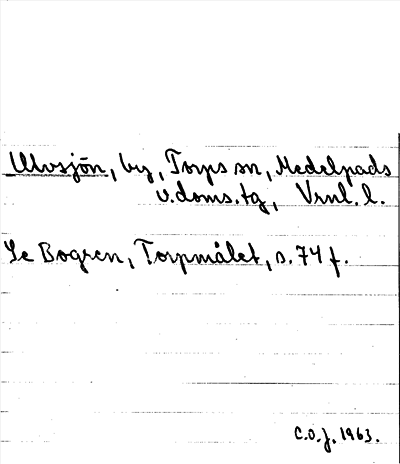 Ulvsjön, by, Torps sn, Medelpads
v.doms.tg, Vrnl. l.
Se Bogren, Torpmålet, s. 74 f.
C.O.J. 1963.